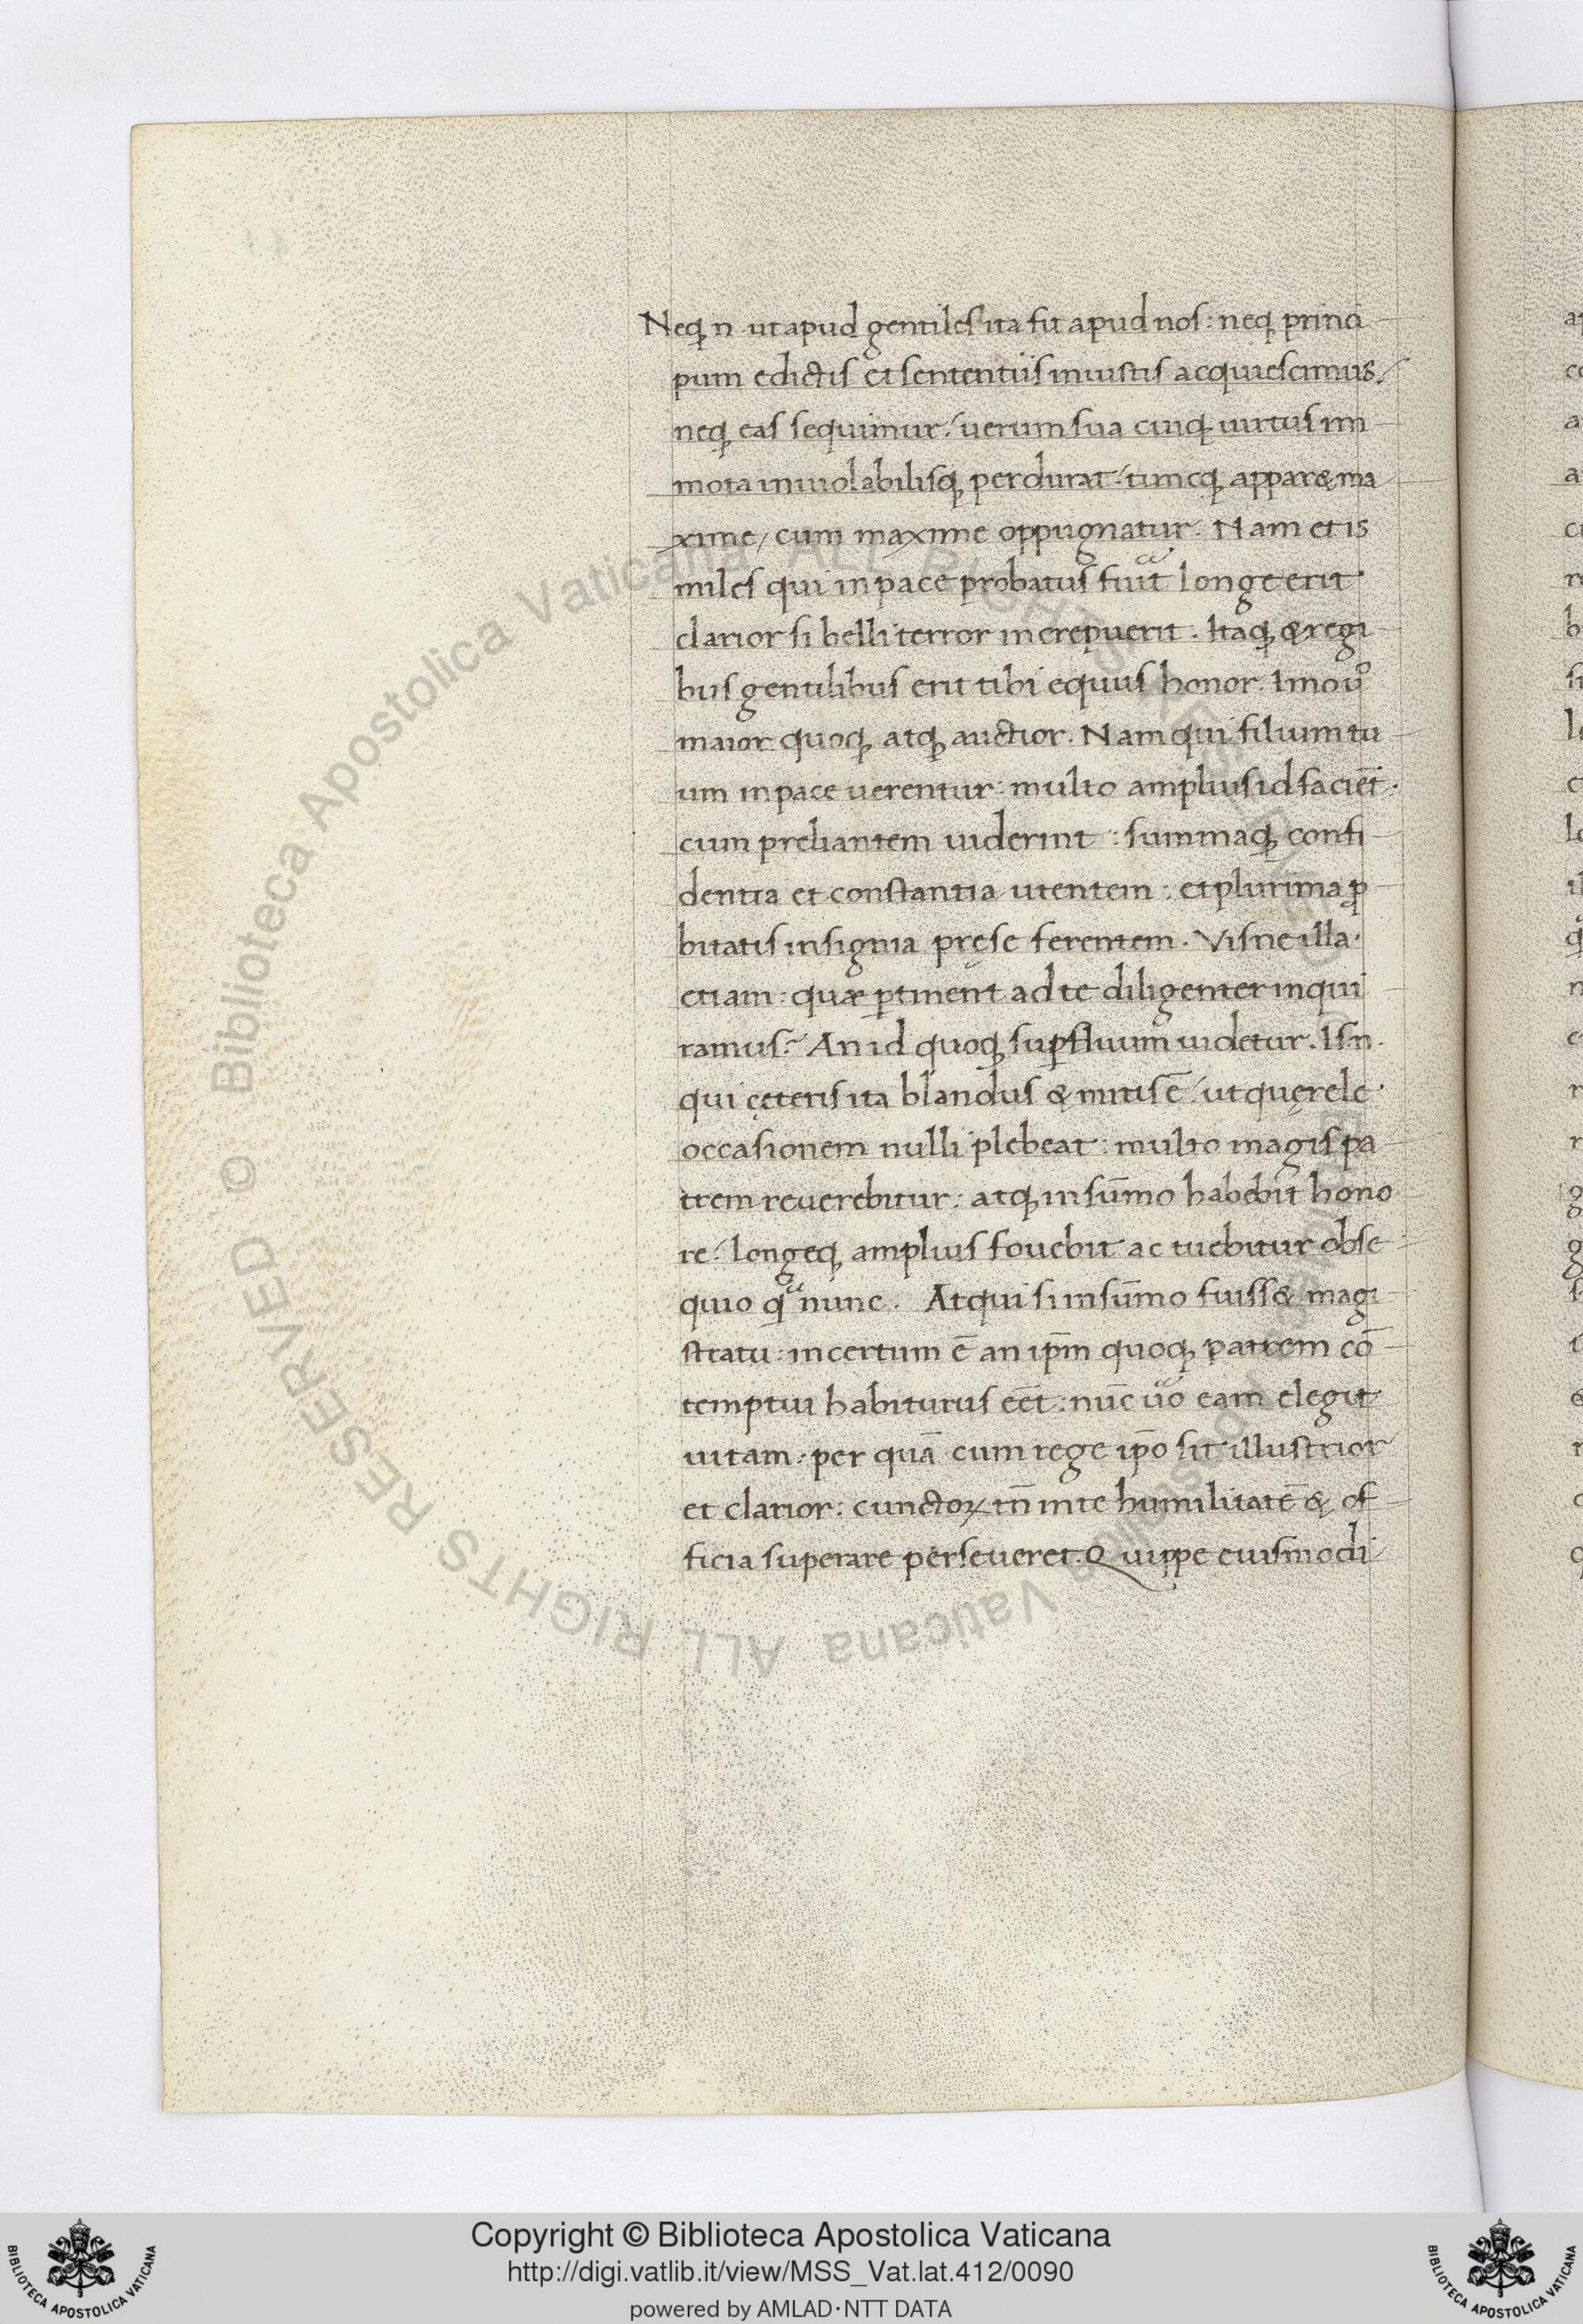 Neqꝫ n̄ ut apud gentiles ita fit apud nos: neqꝫ princi
pum edictis et sententiis iniustis acquiescimus /
neqꝫ eas sequimur / uerum sua cuiqꝫ uirtus im
mota inuiolabilisqꝫ perdurat / tuncqꝫ appar& ma
xime / cum maxime oppugnatur. Nam et is
miles qui in pace probatus fuit longe erit
clarior si belli terror increpuerit. Itaqꝫ & regi
bus gentilibus erit tibi equus honor. Imo u͛o
maior quoqꝫ atqꝫ auctior. Nam qui filium tu
um in pace uerentur: multo amplius id facie̅t
cum preliantem uiderint: summaqꝫ confi
dentia et constantia utentem: et plurima ꝓ
bitatis insignia pręse ferentem. Visne illa
etiam: quæ ꝑtinent ad te diligenter inqui
ramus? An id quoqꝫ suꝑfluum uidetur. Is n̄
qui ceteris ita blandus & mitis ē / ut querele
occasionem nulli p̱lebeat: multo magis pa
trem reuerebitur: atqꝫ in sūmo habebit hono
re / longeqꝫ amplius fouebit ac tuebitur obse
quio qᵃ nunc. Atqui si in sūmo fuiss& magi
stratu: incertum ē an ip̄m quoqꝫ patrem cō
temptui habiturus eēt: nūc uo eam elegit
uitam: per quā cum rege ip̄o sit illustrior
et clarior: cunctoꝝ tn̄ in te humilitatē & of
ficia superare perseueret. Quippe euismodi
Copyright © Biblioteca Apostolica Vaticana
http://digi.vatlib.it/view/MSS_Vat.lat.412/0090
powered by AMLAD·NTT DATA
BIBLIOTECA APOSTOLICA VATICANA
BIBLIOTECA APOSTOLICA VATICANA
© Biblioteca Apostolica Vaticana ALL RIGHTS RESERVED